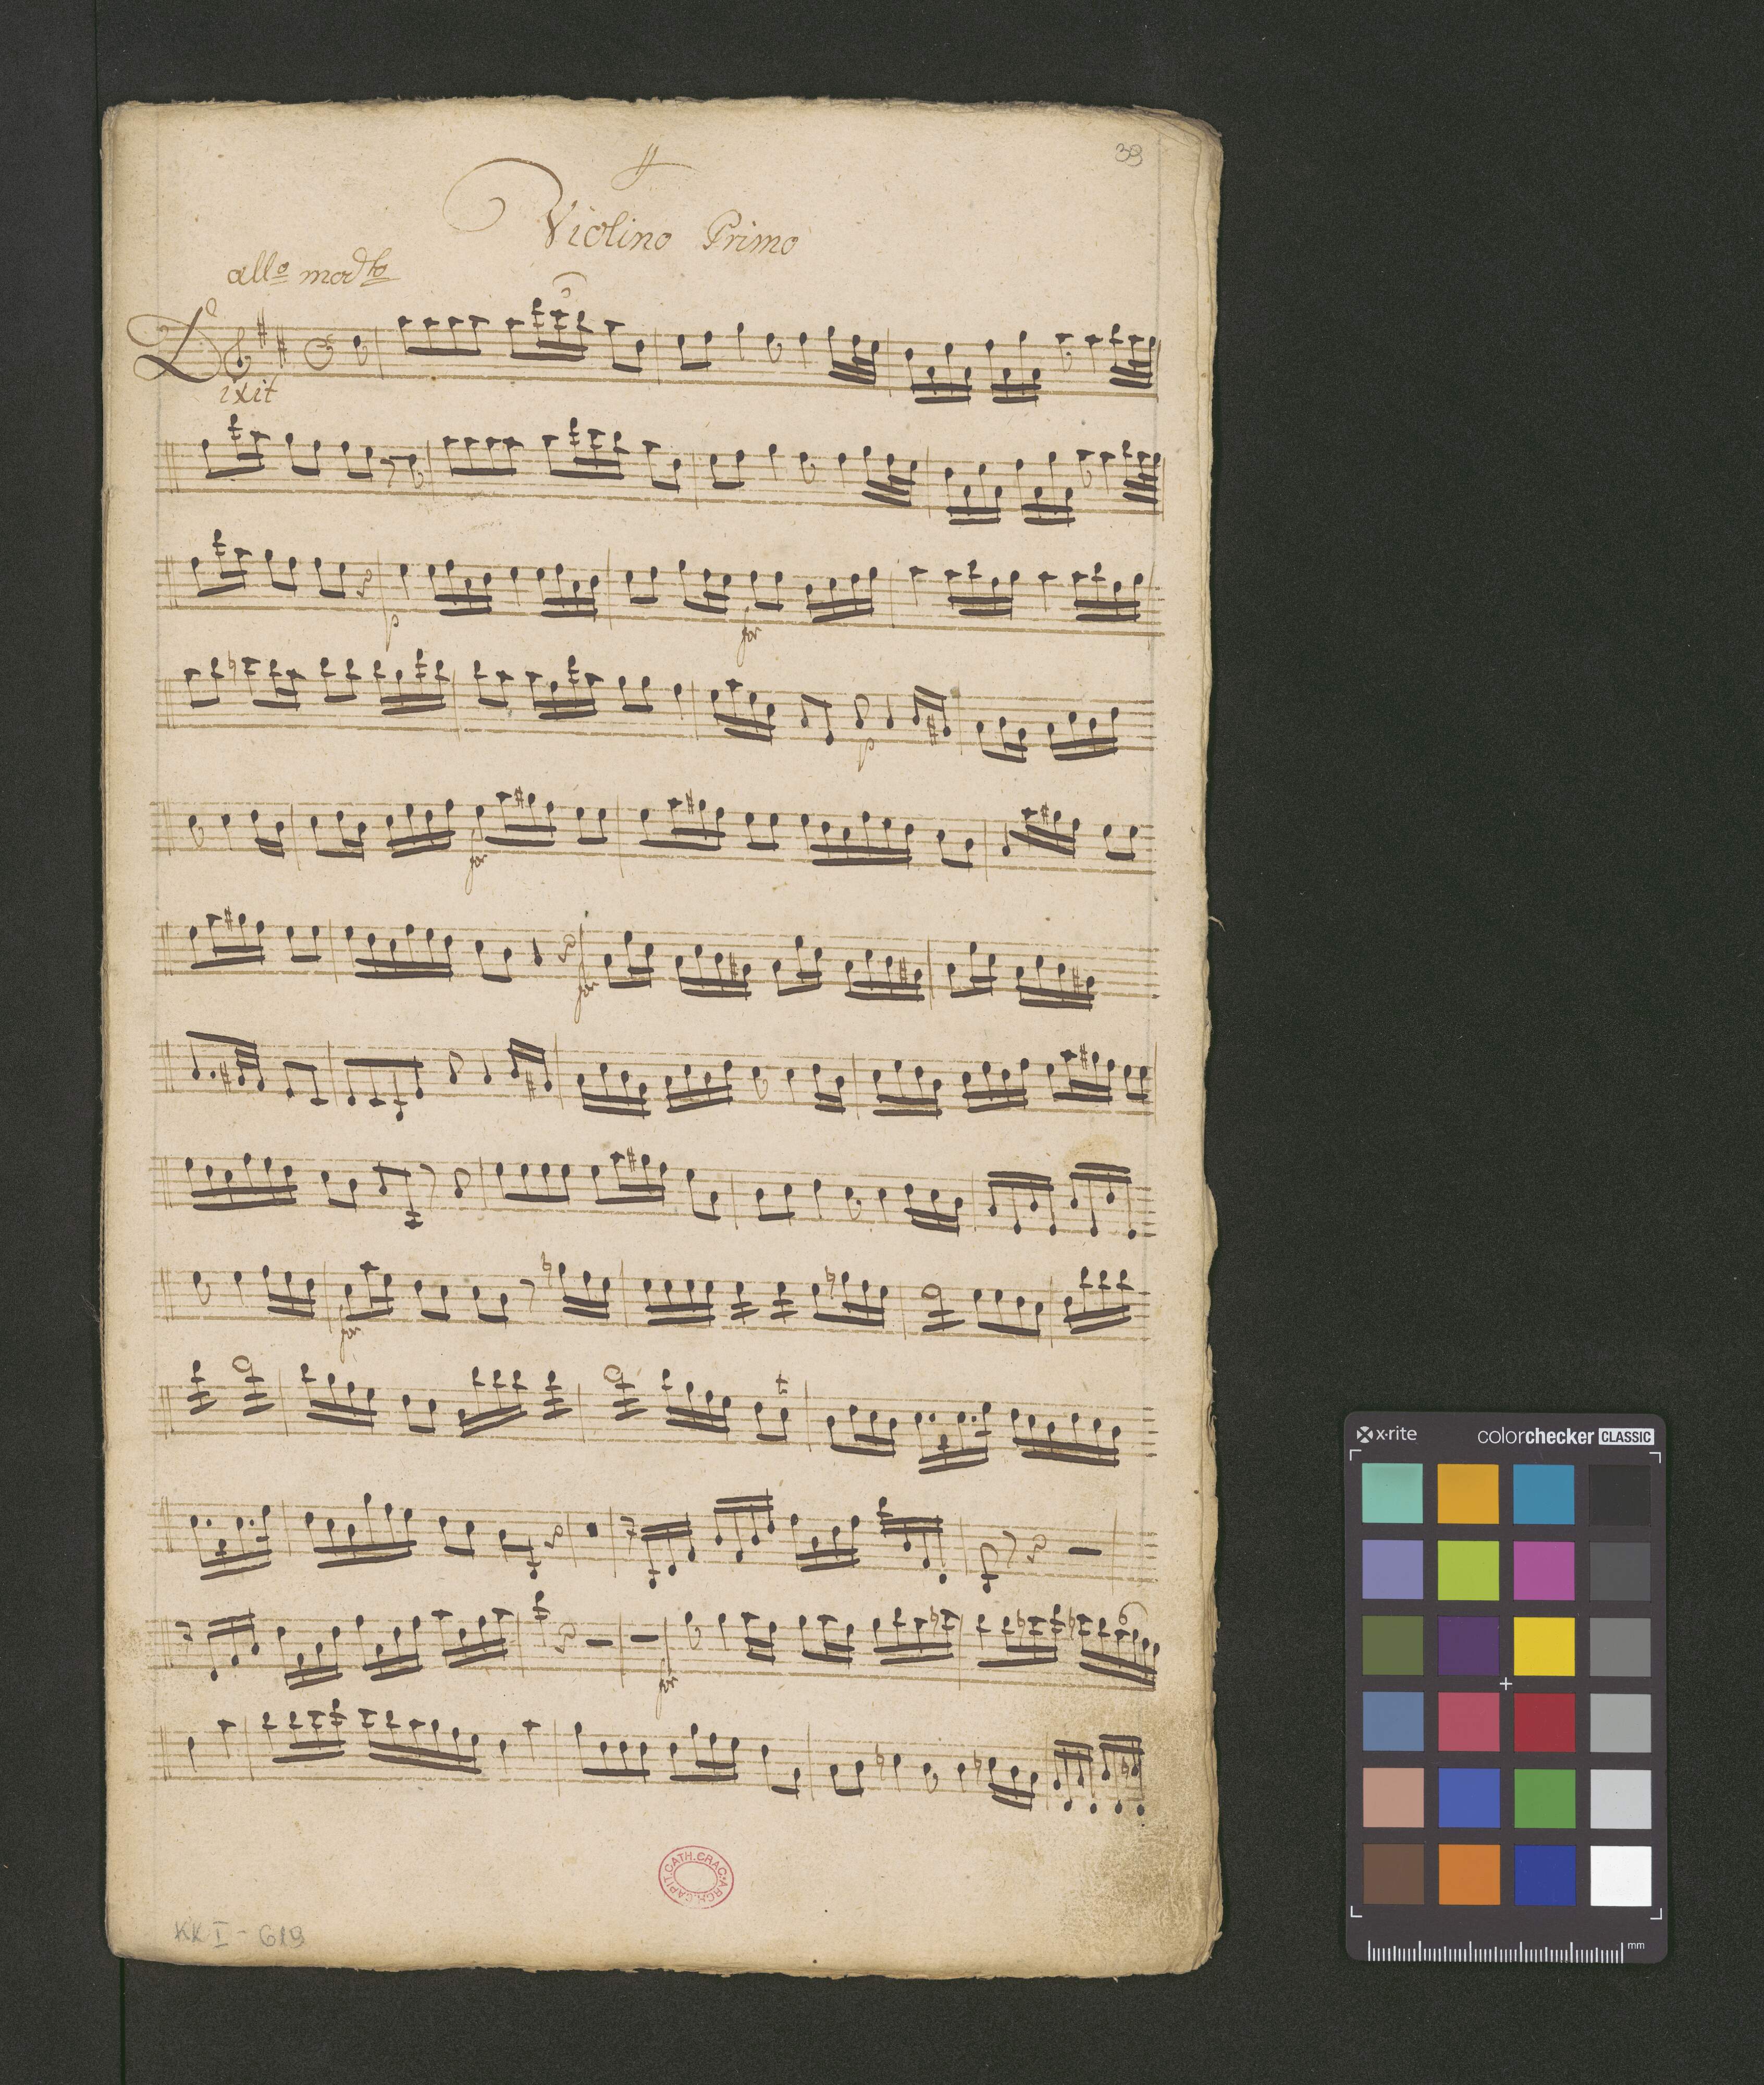 39
Violino Primo
all⁰ mod^to
Dixit
p
for
p
for
for
for
for
ARCH.CAPIT.CATH.CRAC.
KK I - 619
x-rite
colorchecker CLASSIC
mm